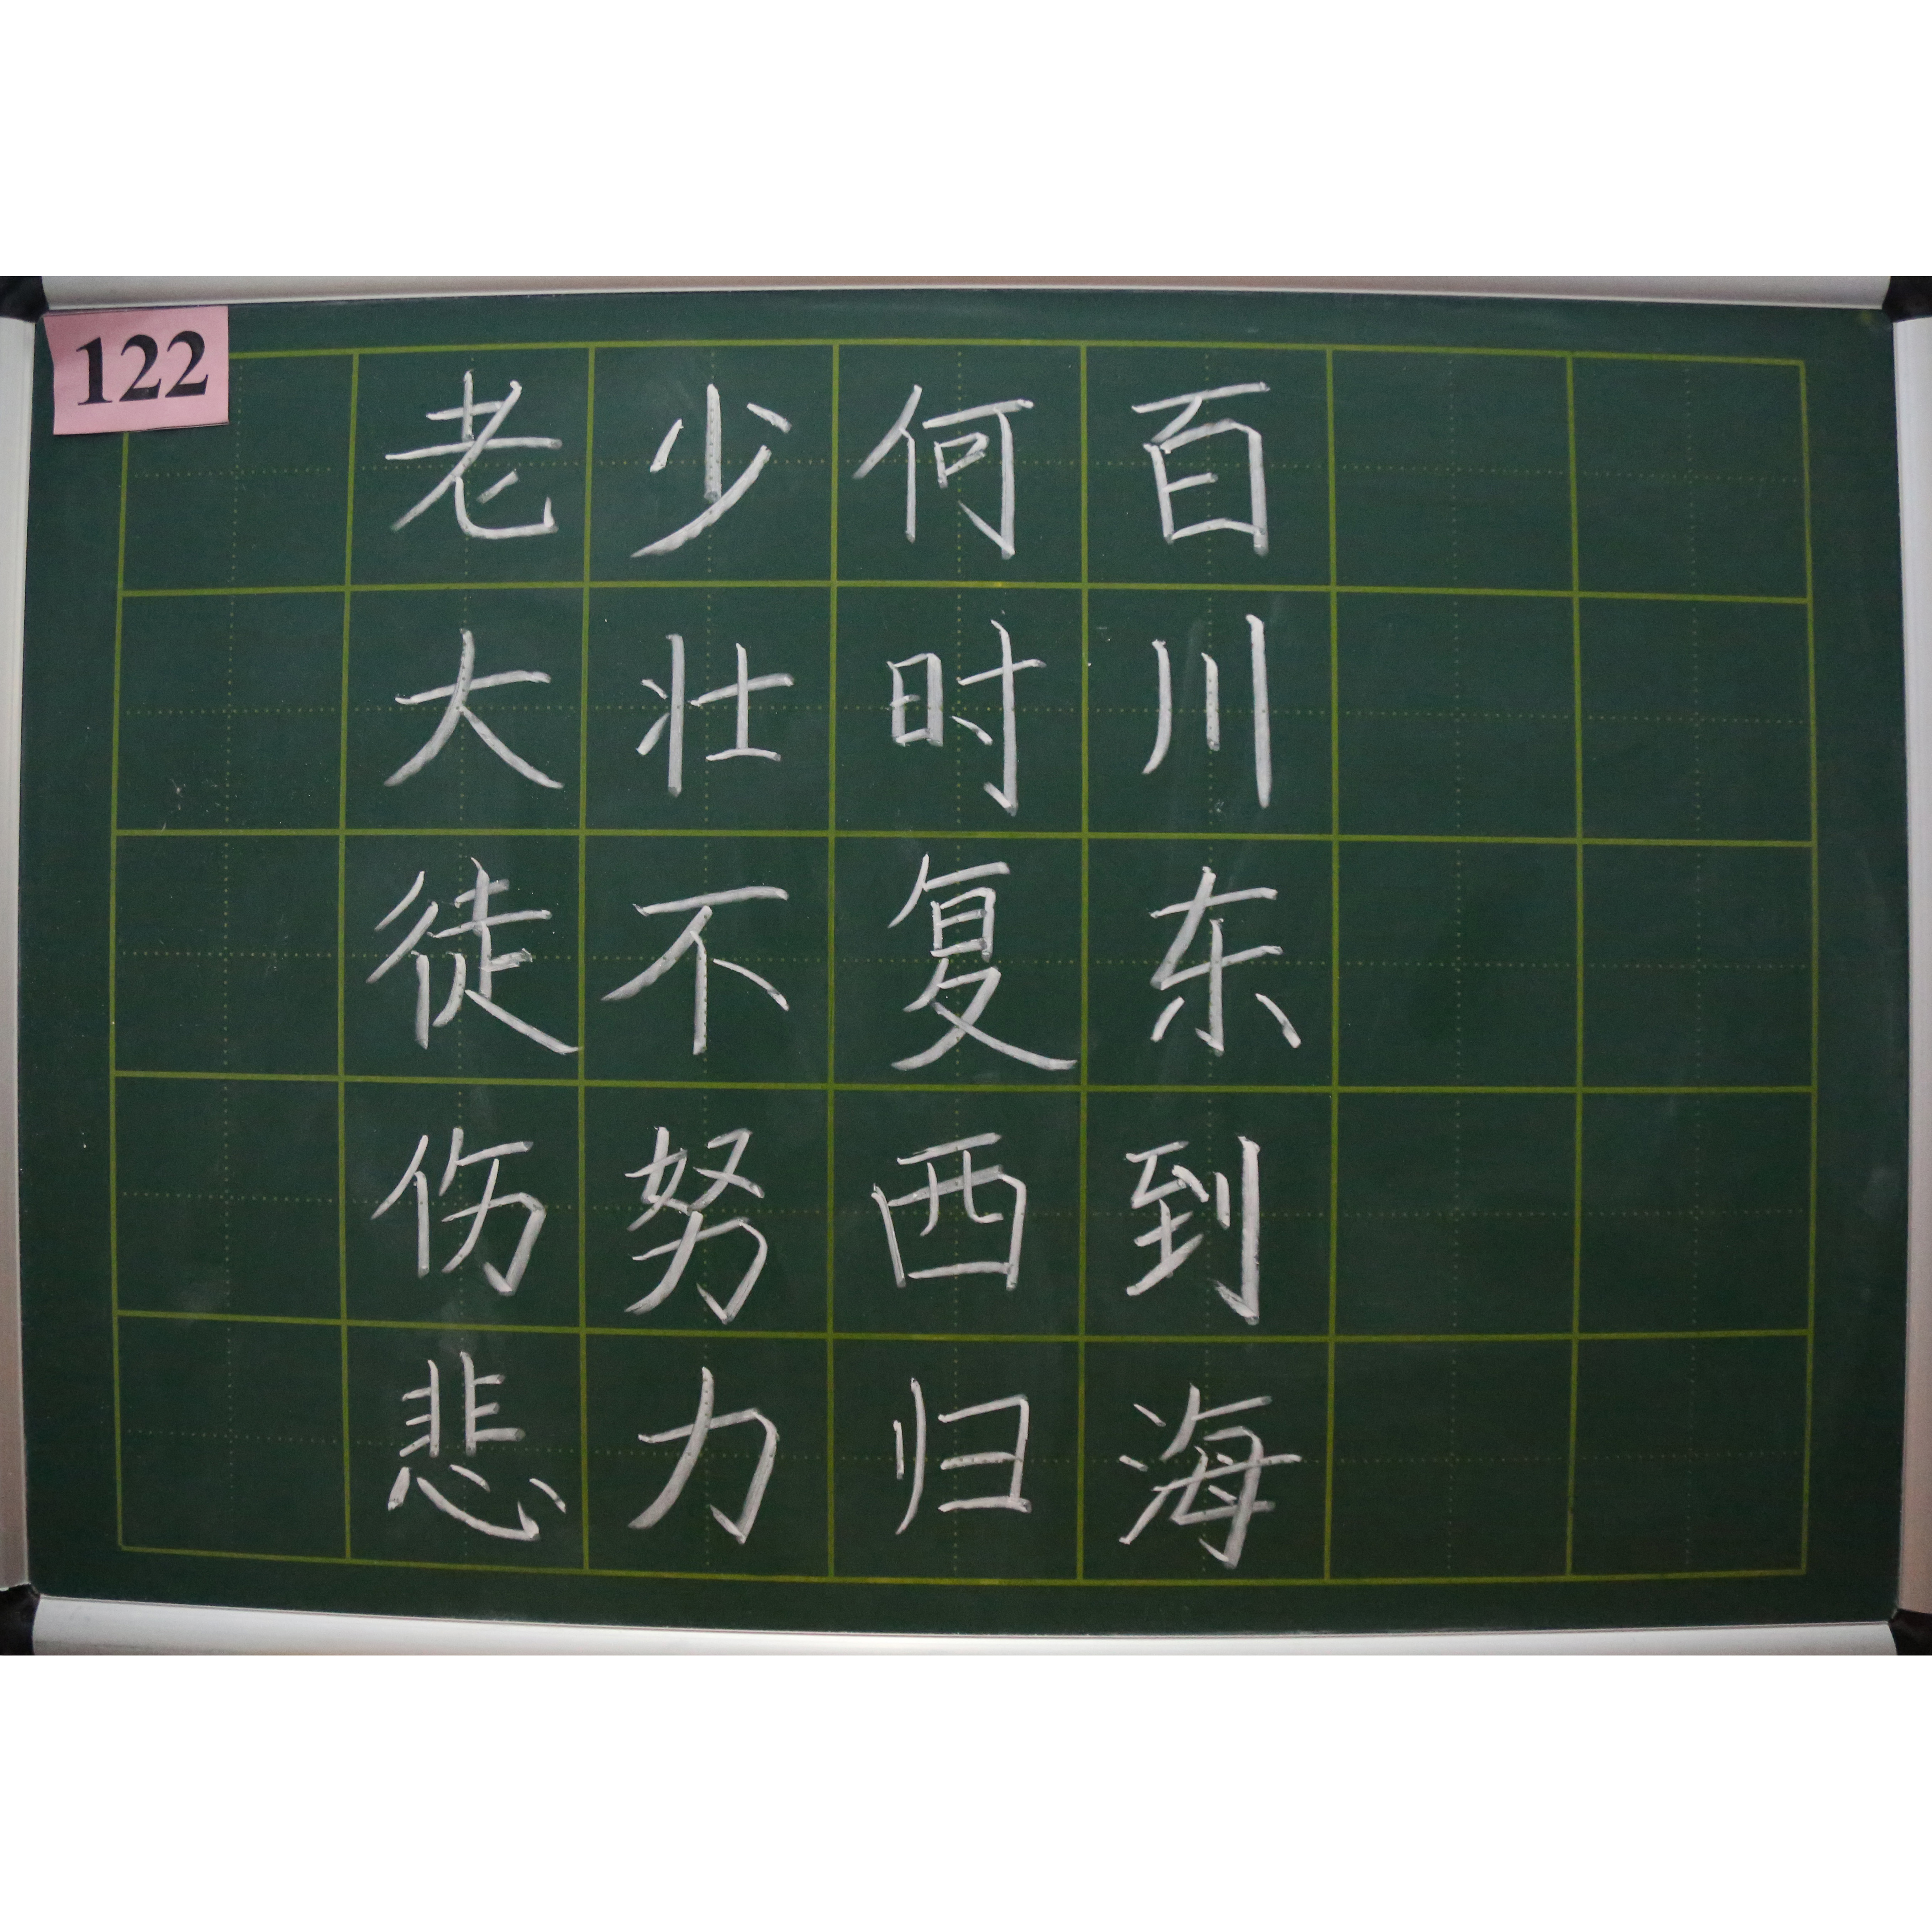 122
百川东到海
何时复西归
少壮不努力
老大徒伤悲